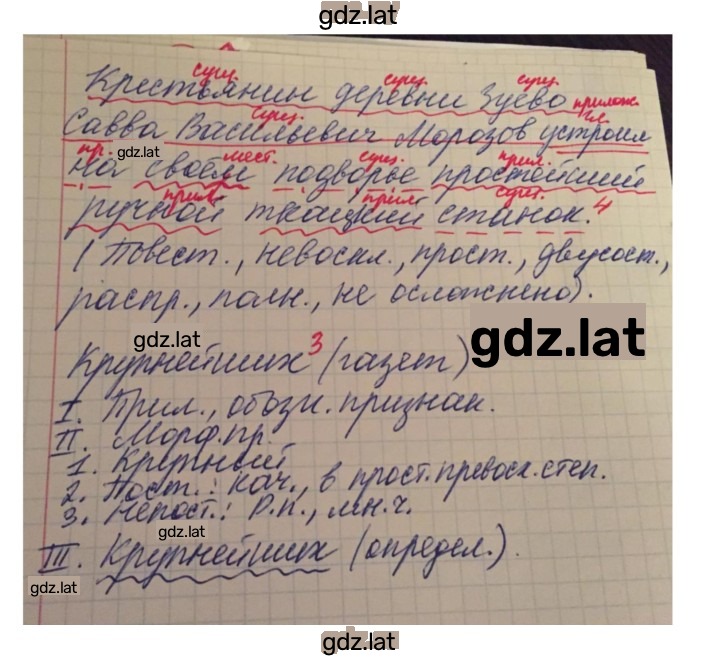 gdz.lat
сущ. сущ. сущ.
Крестьянин деревни Зуево
прилож.
сущ. гл.
Савва Васильевич Морозов устроил
gdz.lat
пр. мест. сущ. прил.
на своём подворье простейший
прил. прил. сущ.
ручной ткацкий станок. 4
(Повест., невоскл., прост., двусост.,
распр., полн., не осложнено).
gdz.lat
gdz.lat
Крупнейших 3 (газет)
I. Прил., обозн. признак.
II. Морф. пр.
1. Крупный
2. Пост.: кач., в прост. превосх. степ.
3. Непост.: Р.п., мн.ч.
gdz.lat
III. Крупнейших (определ.).
gdz.lat
gdz.lat